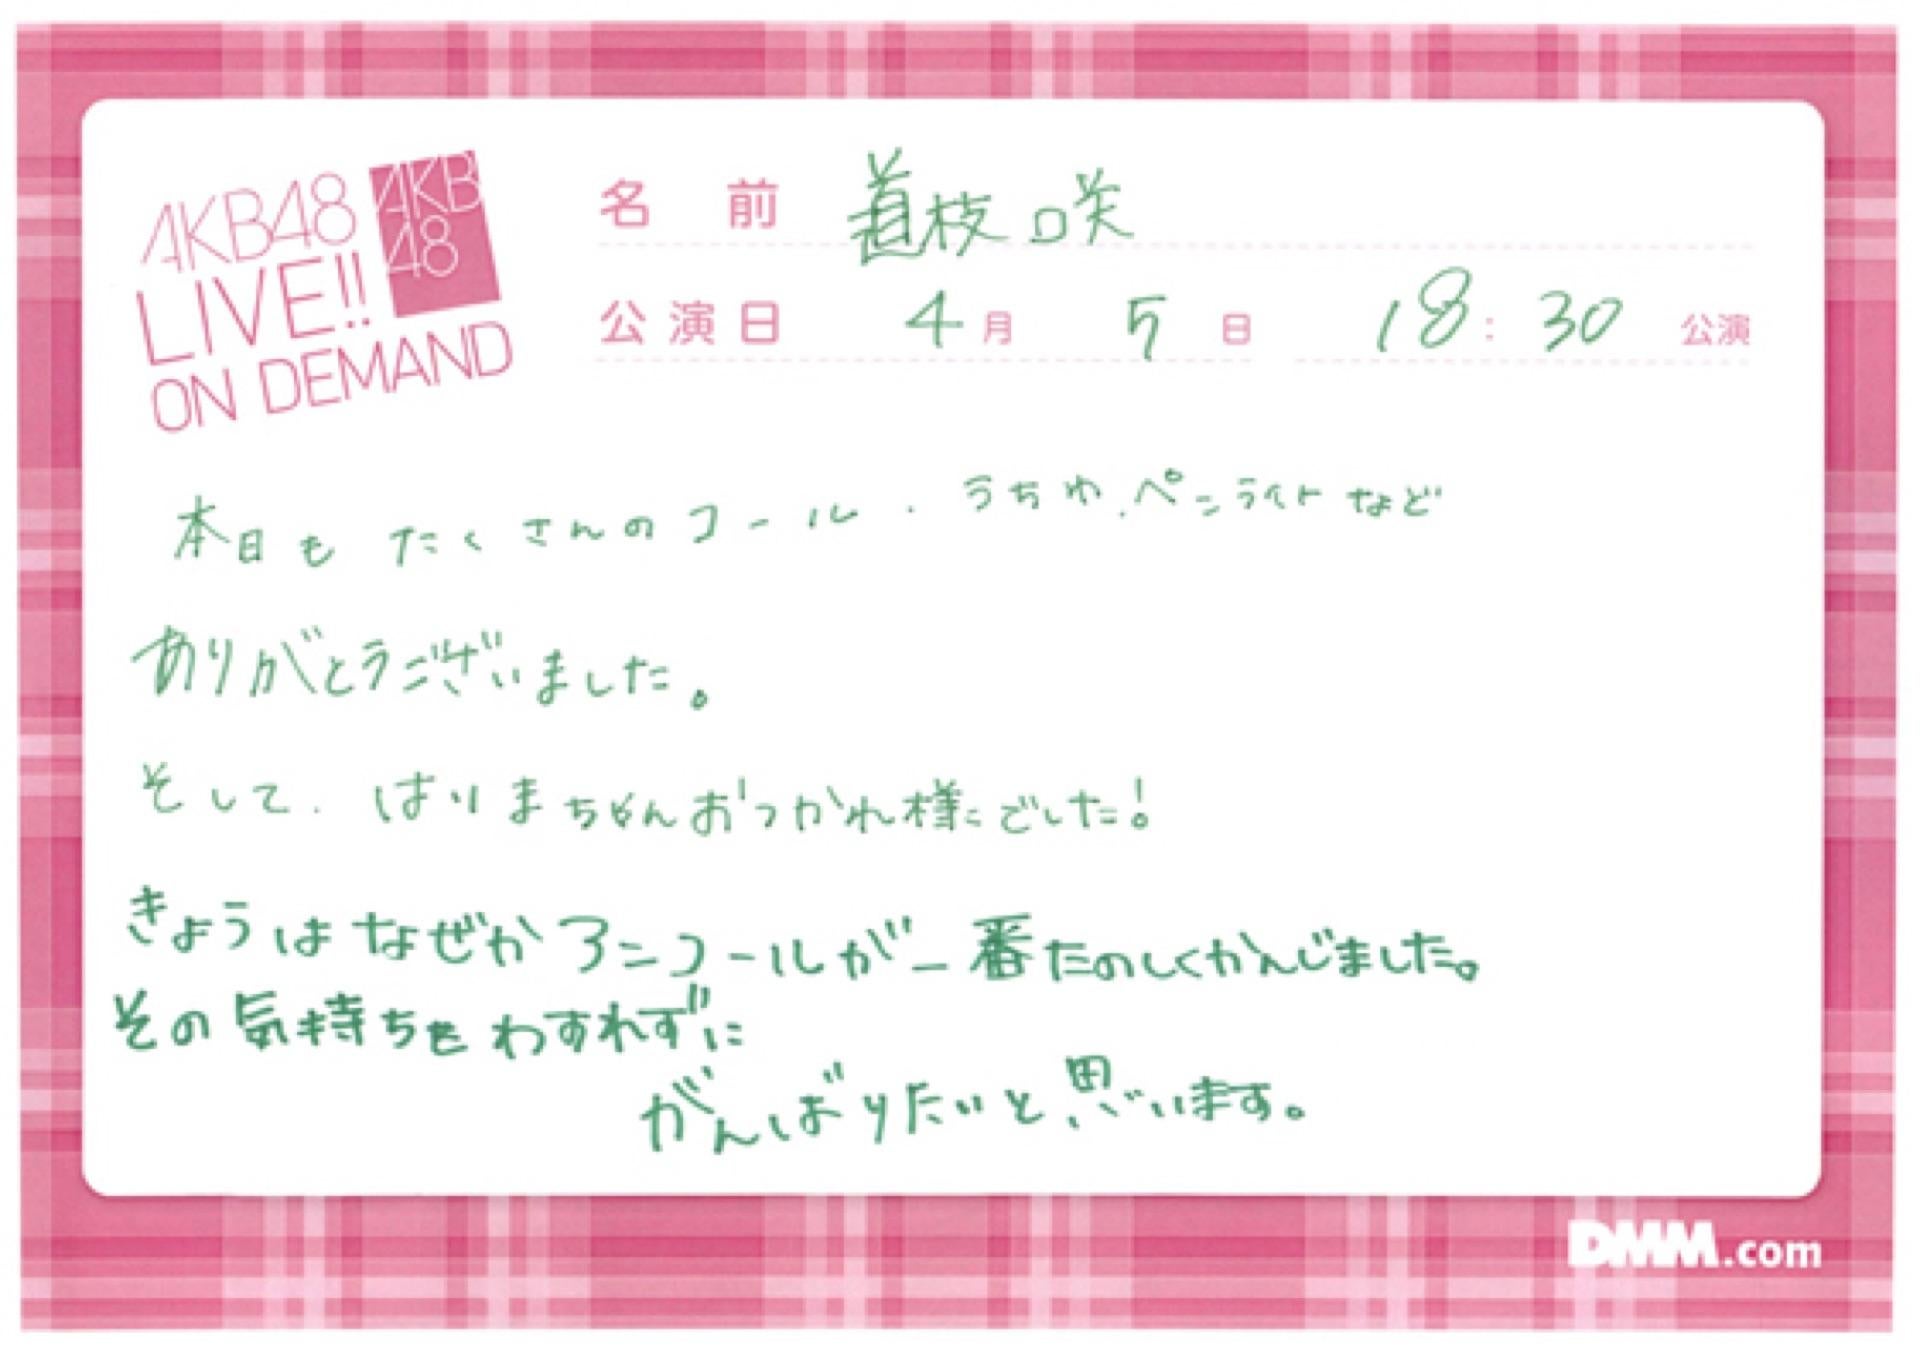 AKB48
LIVE!!
ON DEMAND
AKB
48
名前 道枝咲
公演日 4月 5日 18:30 公演
本日も たくさんのコール、うちわ、ペンライトなど
ありがとうございました。
そして、はりまちゃんおつかれ様でした!
きょうは なぜか アンコールが一番たのしくかんじました。
その気持ちをわすれずに
がんばりたいと思います。
DMM.com